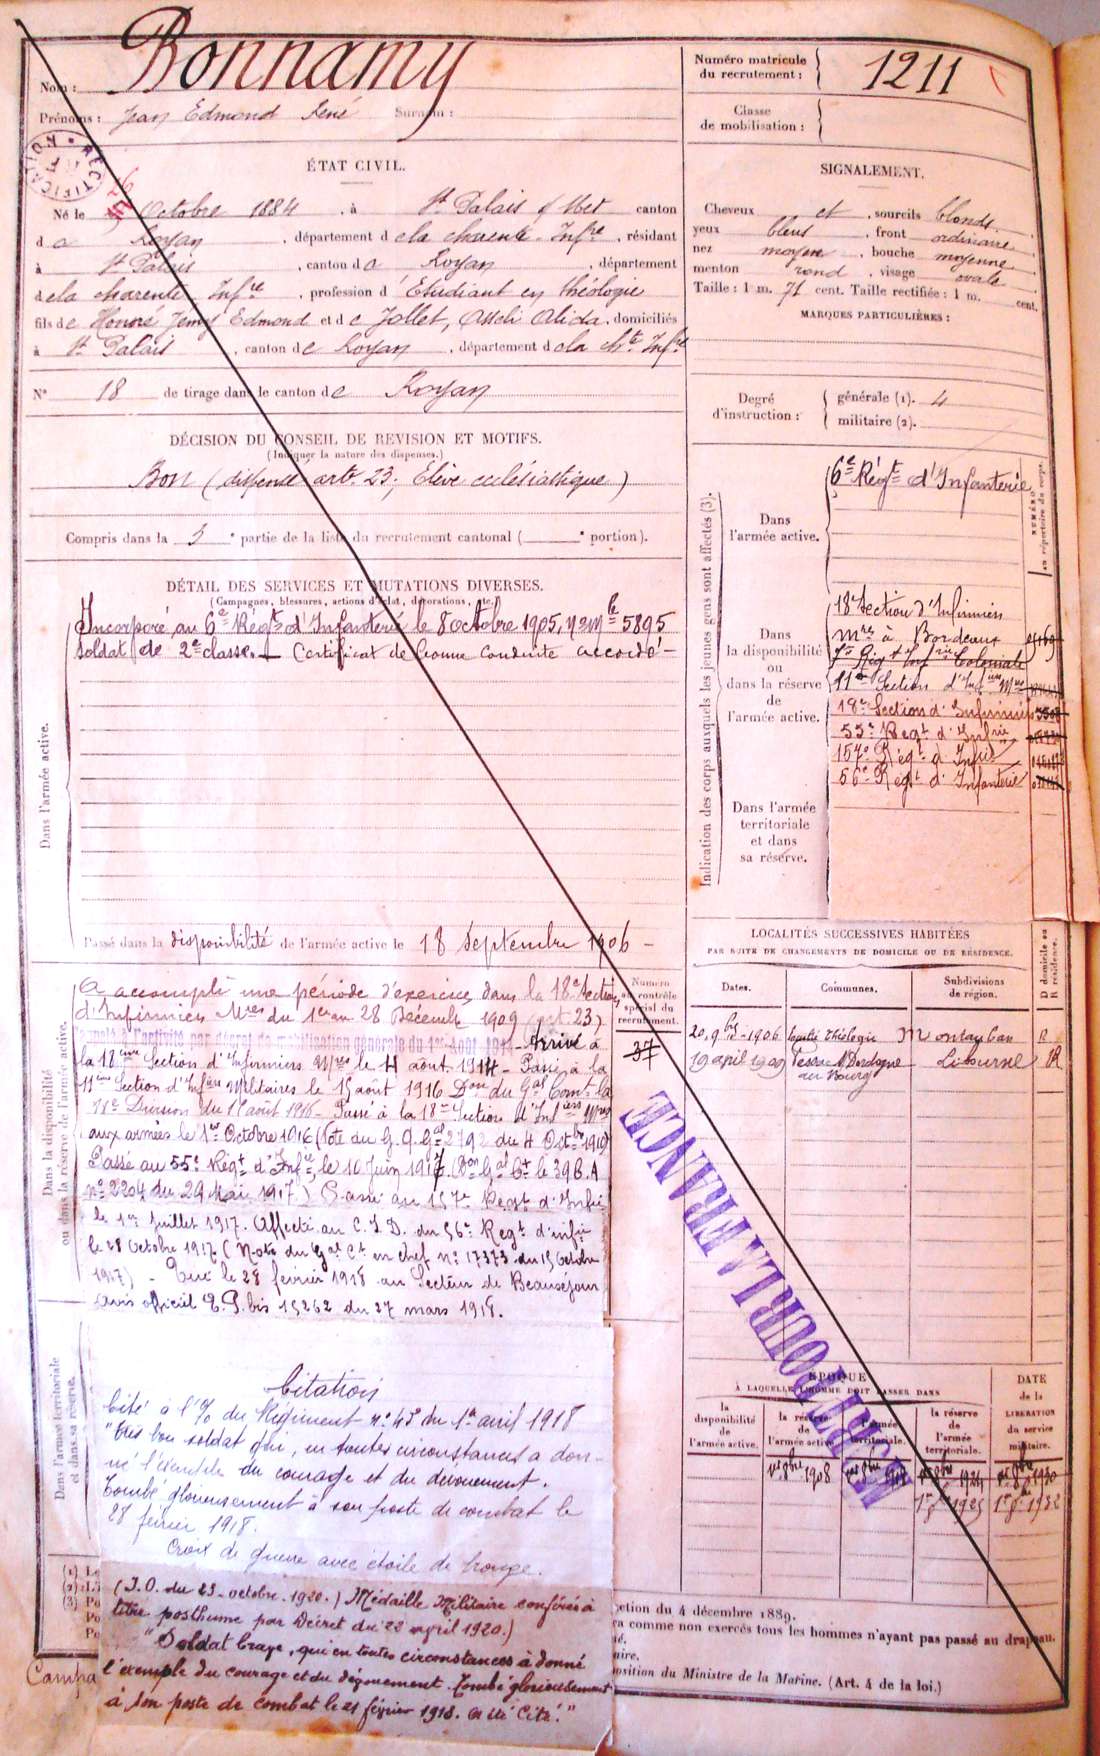 Nom : Bonnamy
Prénoms : Jean Edmond René Surnom :
Numéro matricule du recrutement : 1211
Classe de mobilisation :
RECTIFICATION
ÉTAT CIVIL.
26
Né le Octobre 1884, à St Palais s/ Mer canton
de Royan, département de la Charente-Infre, résidant
à St Palais, canton de Royan, département
de la Charente Infre, profession d'Etudiant en théologie
fils de Honoré Jemy Edmond et de Jollet, Alida, domiciliés
à St Palais, canton de Royan, département de la Chte Infre
N° 18 de tirage dans le canton de Royan
DÉCISION DU CONSEIL DE REVISION ET MOTIFS.
(Indiquer la nature des dispenses.)
Bon (dispensé art. 23, Elève ecclésiastique)
Compris dans la 3e partie de la liste du recrutement cantonal ( e portion).
SIGNALEMENT.
Cheveux et, sourcils blonds.
yeux bleus, front ordinaire
nez moyen, bouche moyenne
menton rond, visage ovale
Taille : 1 m. 71 cent. Taille rectifiée : 1 m. cent.
MARQUES PARTICULIÈRES :
Degré d'instruction : générale (1). 4
militaire (2).
DÉTAIL DES SERVICES ET MUTATIONS DIVERSES.
(Campagnes, blessures, actions d'éclat, décorations, etc.)
Dans l'armée active.
Incorporé au 6e Régt d'Infanterie le 8 octobre 1905, No mle 5895
soldat de 2e classe. — Certificat de bonne conduite accordé —
Passé dans la disponibilité de l'armée active le 18 Septembre 1906 —
Indication des corps auxquels les jeunes gens sont affectés (3).
NUMÉRO au répertoire du corps.
Dans l'armée active.
6e Régt d'Infanterie
Dans la disponibilité ou dans la réserve de l'armée active.
18e Section d'Infirmiers
Mres à Bordeaux
7e Régt Infrie Coloniale
11e Section d'Infiers Mres
18e Section d'Infirmiers
55e Régt d'Infrie
157e Régt d'Infie
56e Régt d'Infanterie
Dans l'armée territoriale et dans sa réserve.
Dans la disponibilité ou dans la réserve de l'armée active.
Numéro au contrôle spécial du recrutement.
37
A accompli une période d'exercices dans la 18e Section
d'Infirmiers Mres du 1er au 28 Décembre 1909 (art. 23)
Rappelé à l'activité par décret de mobilisation générale du 1er Août 1914 - Arrivé à
la 18ème Section d'Infirmiers Mres le 4 août 1914 - Passé à la
11ème Section d'Infiers Militaires le 15 août 1916 Don du Gal Comt la
Division du 11 août 1916 - Passé à la 18e Section d'Infiers Mres
aux armées le 1er Octobre 1916 (Note du G.Q.Gal 2792 du 4 Octbre 1916)
Passé au 55e Régt d'Infie le 10 Juin 1917 (Don Gal Ct le 39 C.A
n° 2204 du 29 Mai 1917) Passé au 157e Regt d'Infie
le 1er Juillet 1917. Affecté au C.I.D. du 56e Regt d'infie
le 28 Octobre 1917 (Note du Gal Ct en chef n° 17373 du 15 Octobre
1917) - Tué le 28 février 1918 au Secteur de Beauséjour
avis officiel bis 15262 du 27 mars 1918.
LOCALITÉS SUCCESSIVES HABITÉES
PAR SUITE DE CHANGEMENTS DE DOMICILE OU DE RÉSIDENCE.
Dates. Communes. Subdivisions de région. D domicile ou R résidence.
20, 9bre-1906 faculté théologie Montauban R
19 avril 1909 Pessac s/ Dordogne au Bourg Libourne R
MORT POUR LA FRANCE
ÉPOQUE
À LAQUELLE L'HOMME DOIT PASSER DANS
la disponibilité de l'armée active. la réserve de l'armée active. l'armée territoriale. la réserve de l'armée territoriale. DATE de la LIBÉRATION du service militaire.
1er 8bre 1908
Dans l'armée territoriale et dans sa réserve.
Citation
Cité à l'O/ du Régiment n° 45 du 1er avril 1918
"très bon soldat qui, en toutes circonstances a don-
né l'exemple du courage et du dévouement.
Tombé glorieusement à son poste de combat le
28 février 1918.
Croix de guerre avec étoile de bronze.
(J.O. du 23 octobre 1920.) Médaille Militaire conférée à
titre posthume par Décret du 22 avril 1920.)
"Soldat brave, qui en toutes circonstances à donné
l'exemple du courage et du dévouement. Tombé glorieusement
à son poste de combat le 21 février 1918. a été cité."
(1)
(2)
(3)
Campa
4 décembre 1889.
comme non exercés tous les hommes n'ayant pas passé au drapeau.
du Ministre de la Marine. (Art. 4 de la loi.)